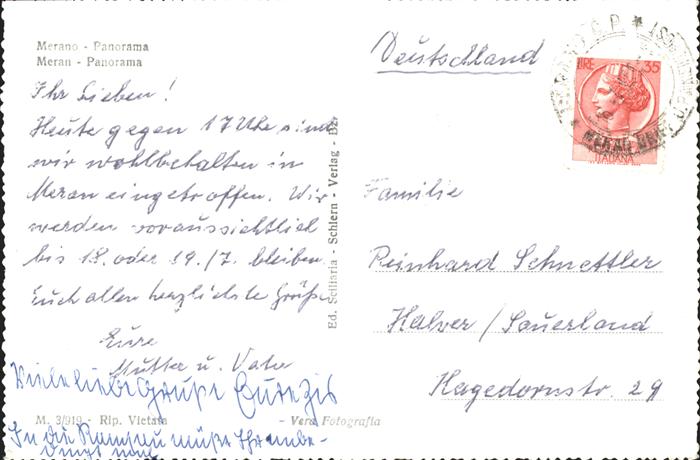 Merano - Panorama
Meran - Panorama
Ihr Lieben!
Heute gegen 17 Uhr sind
wir wohlbehalten in
Meran eingetroffen. Wir
werden voraussichtlich
bis 18. oder 19./7. bleiben.
Euch allen herzlichste Grüße
Eure
Mutter u. Vater
Viele liebe Grüße Eure
M. 3/919 - Rip. Vietata
- Vera Fotografia
In die müßt Ihr
Ed. Sciliaria - Schlern - Verlag - Bz.
Deutschland
LIRE 35
ITALIANA
MERANO
Familie
Reinhard Schnettler
Halver / Sauerland
Hagedornstr. 29